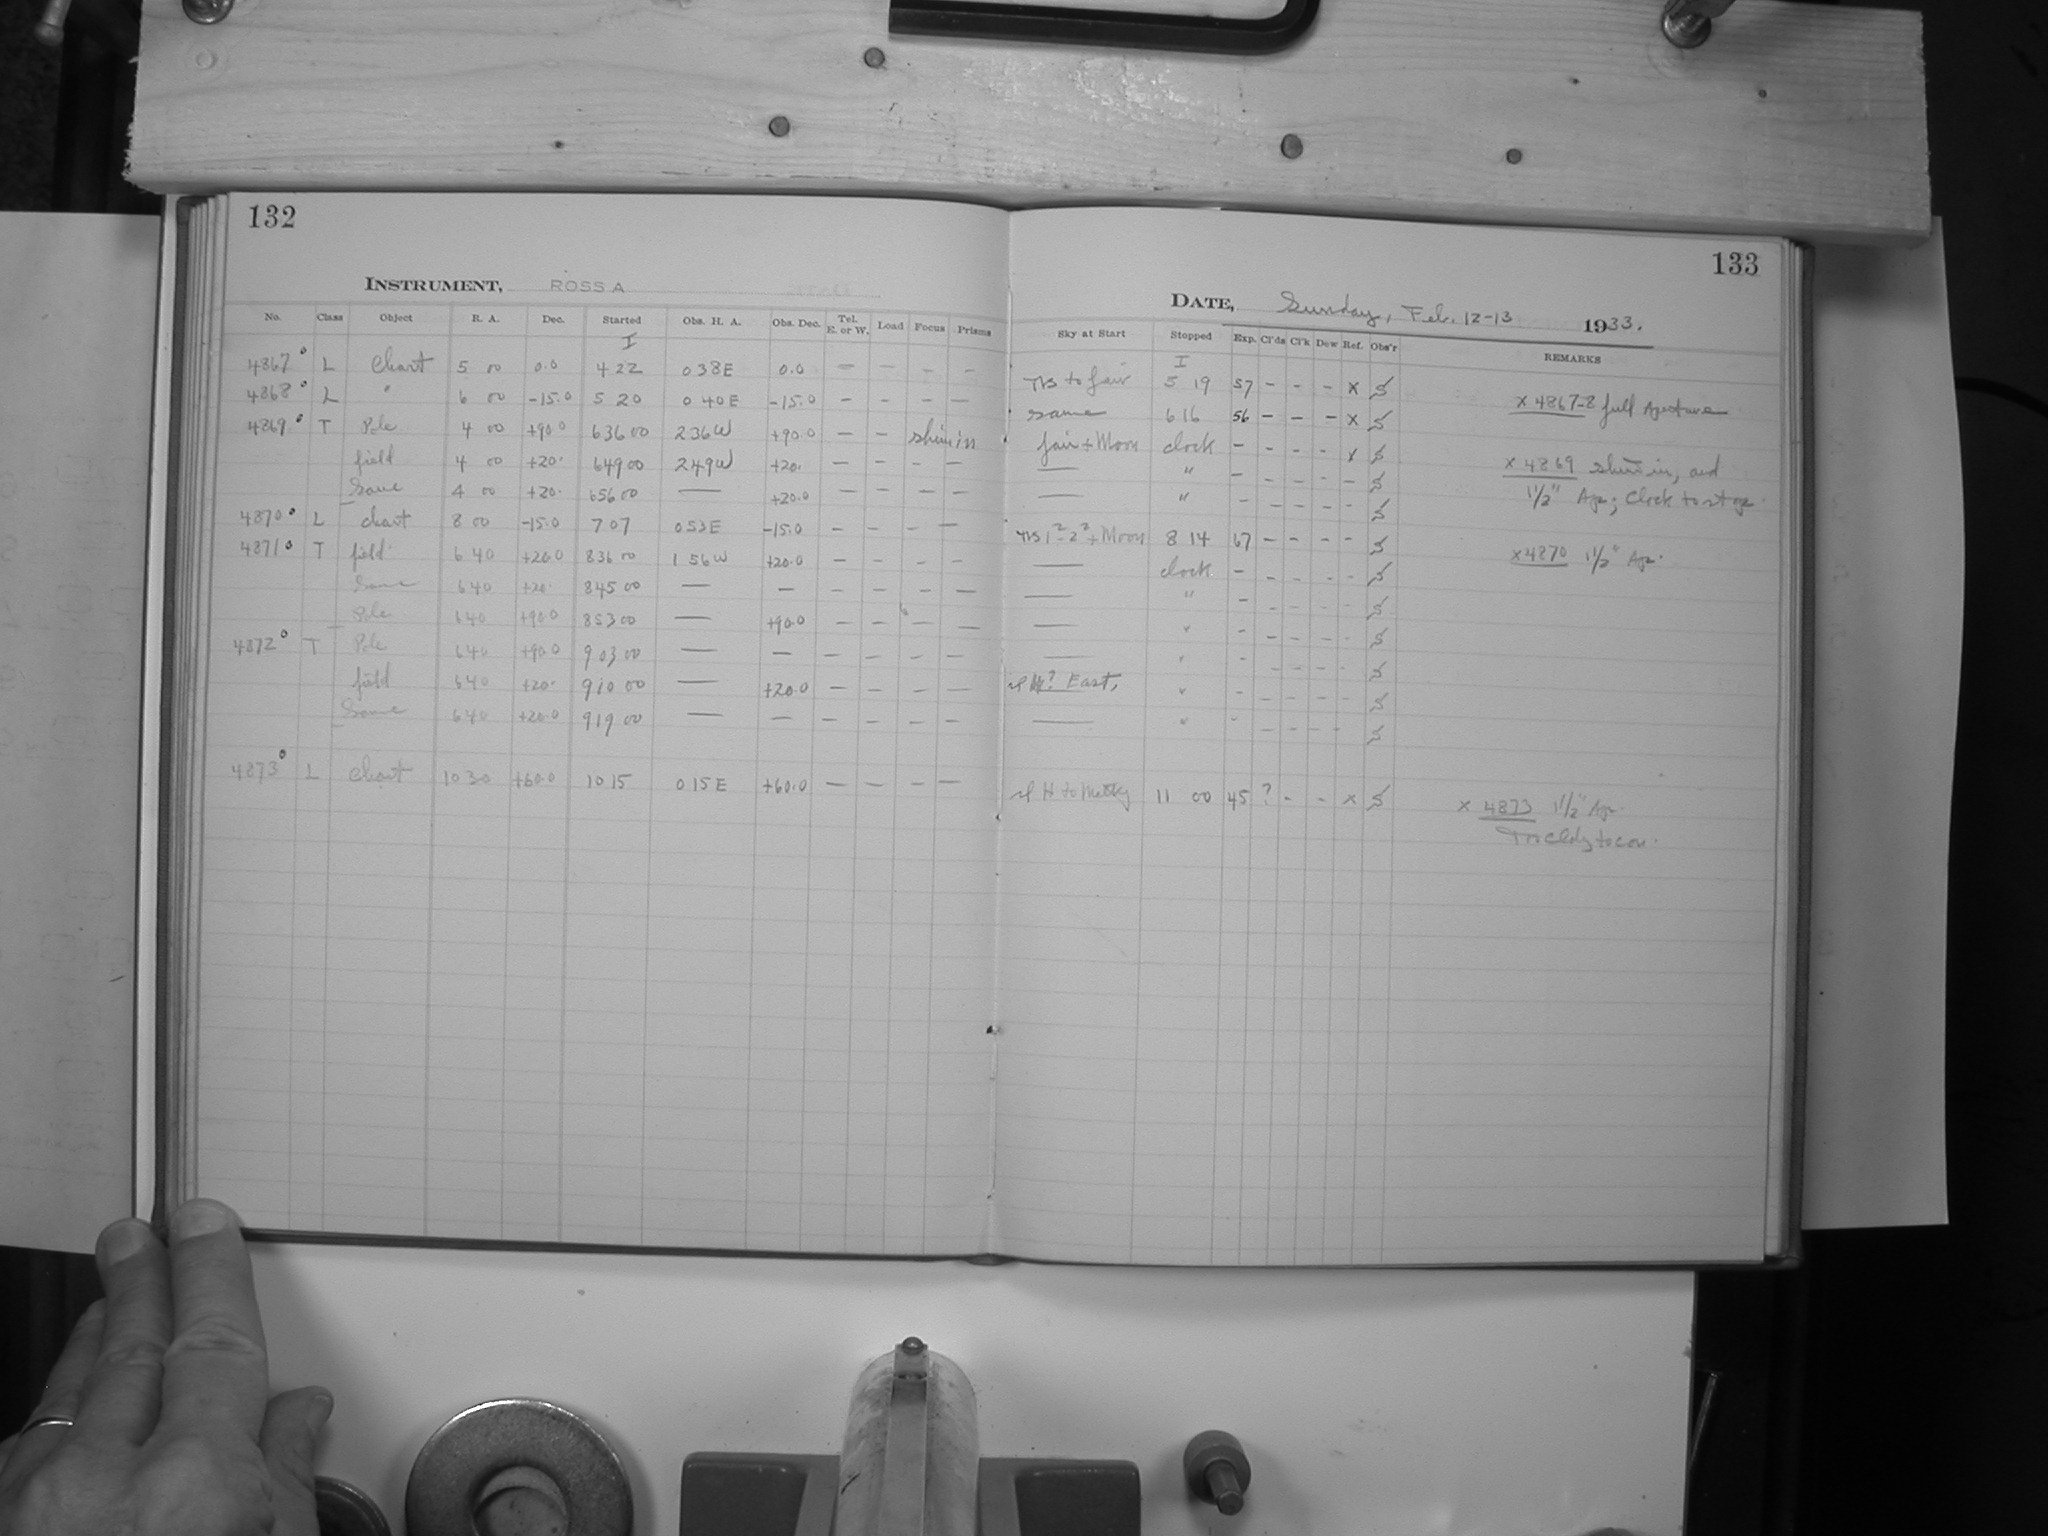 132
INSTRUMENT, ROSS A
No. Class Object R. A. Dec. Started Obs. H. A. Obs. Dec. Tel. E. or W. Load Focus Prisms
I
4867° L Chart 5 00 0.0 4 22 0 38E 0.0 — — – –
4868° L " 6 00 -15.0 5 20 0 40E -15.0 – – – –
4869° T Pole 4 00 +90.0 6 36 00 2 36W +90.0 – – shim in
field 4 00 +20. 6 49 00 2 49W +20. – – – –
Same 4 00 +20. 6 56 00 — +20.0 – – – –
4870° L chart 8 00 -15.0 7 07 0 53E -15.0 – – – –
4871° T field 6 40 +20.0 8 36 00 1 56W +20.0 – – – –
Same 6 40 +20. 8 45 00 — – – – – –
Pole 6 40 +90.0 8 53 00 — +90.0 – – – –
4872° T Pole 6 40 +90.0 9 03 00 — – – – – –
field 6 40 +20. 9 10 00 — +20.0 – – – –
Same 6 40 +20.0 9 19 00 — – – – – –
4873° L Chart 10 30 +60.0 10 15 0 15E +60.0 – – – –
133
DATE, Sunday, Feb. 12-13 1933.
Sky at Start Stopped Exp. Cl'ds Cl'k Dew Ref. Obs'r REMARKS
I
to fair 5 19 57 – – – x S
x 4867-8 full Aperture
same 6 16 56 – – – x S
fair + Moon clock – – – – x S
x 4869 shim in, and
— " – – – – – S
1 1/2" Ap; Clock to stop
— " – – – – – S
+ Moon 8 14 67 – – – – S
x 4870 1 1/2" Ap.
— clock – – – – – S
— " – – – – – S
— " – – – – – S
— " – – – – – S
H? East, " – – – – – S
— " – – – – – S
H to 11 00 45 ? – – x S
x 4873 1 1/2" Ap.
Too cldy to con.